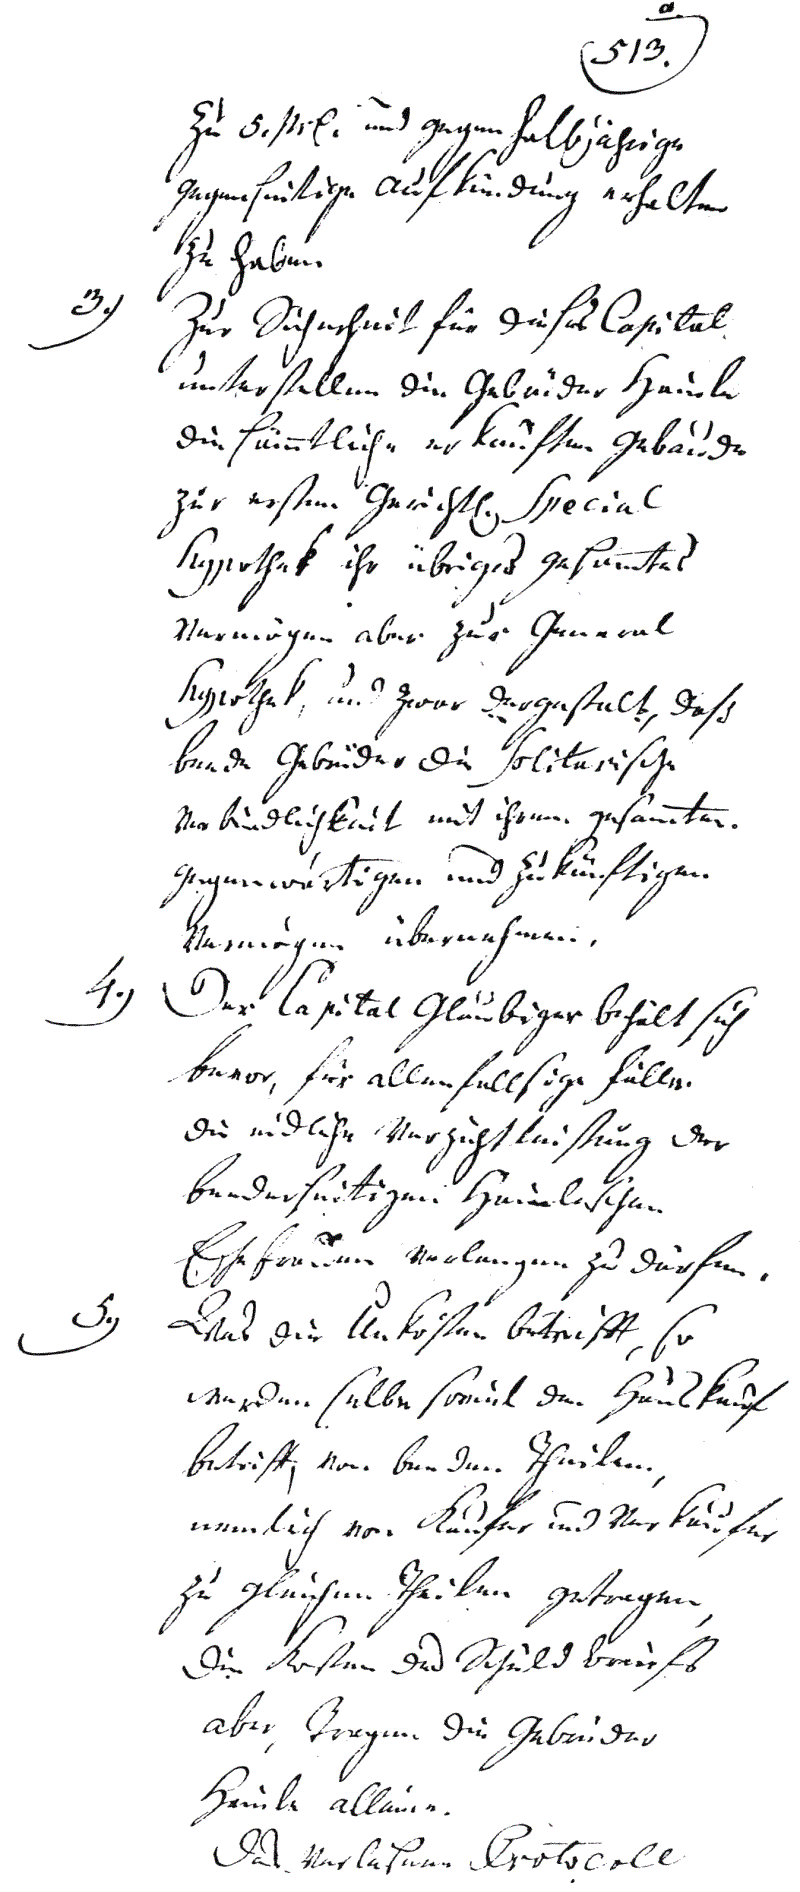 a.
513.
zu 5. prC. und gegen halbjährige
gegenseitige Aufkündung erhalten
zu haben.
3.) Zur Sicherheit für dieses Capital
unterstellen die Gebrüder Heinle
die sämtliche erkauften Gebäude
zur ersten Gerichtl. Special
Hypothek ihr übriges gesamtes
Vermögen aber zur General
Hypothek, und zwar dergestalt, daß
beede Gebrüder die Solitarische
Verbindlichkeit mit ihrem gesamten.
gegenwärtigen und zukünftigen
Vermögen übernehmen.
4.) Der Capital Gläubiger behält sich
bevor, für allenfallsige Fälle
die eidliche Verzichtleistung der
beederseitigen Heinleschen
Ehefrauen verlangen zu dürfen.
5.) Was die Unkosten betrifft, so
werden selbe soviel den Hauskauf
betrift, von beeden Theilen,
nemlich von Käufer und Verkäufer
zu gleichen Theilen getragen,
Die Kosten des Schuldbriefs
aber, tragen die Gebrüder
Heinle alleine.
Das verlesene Protocoll